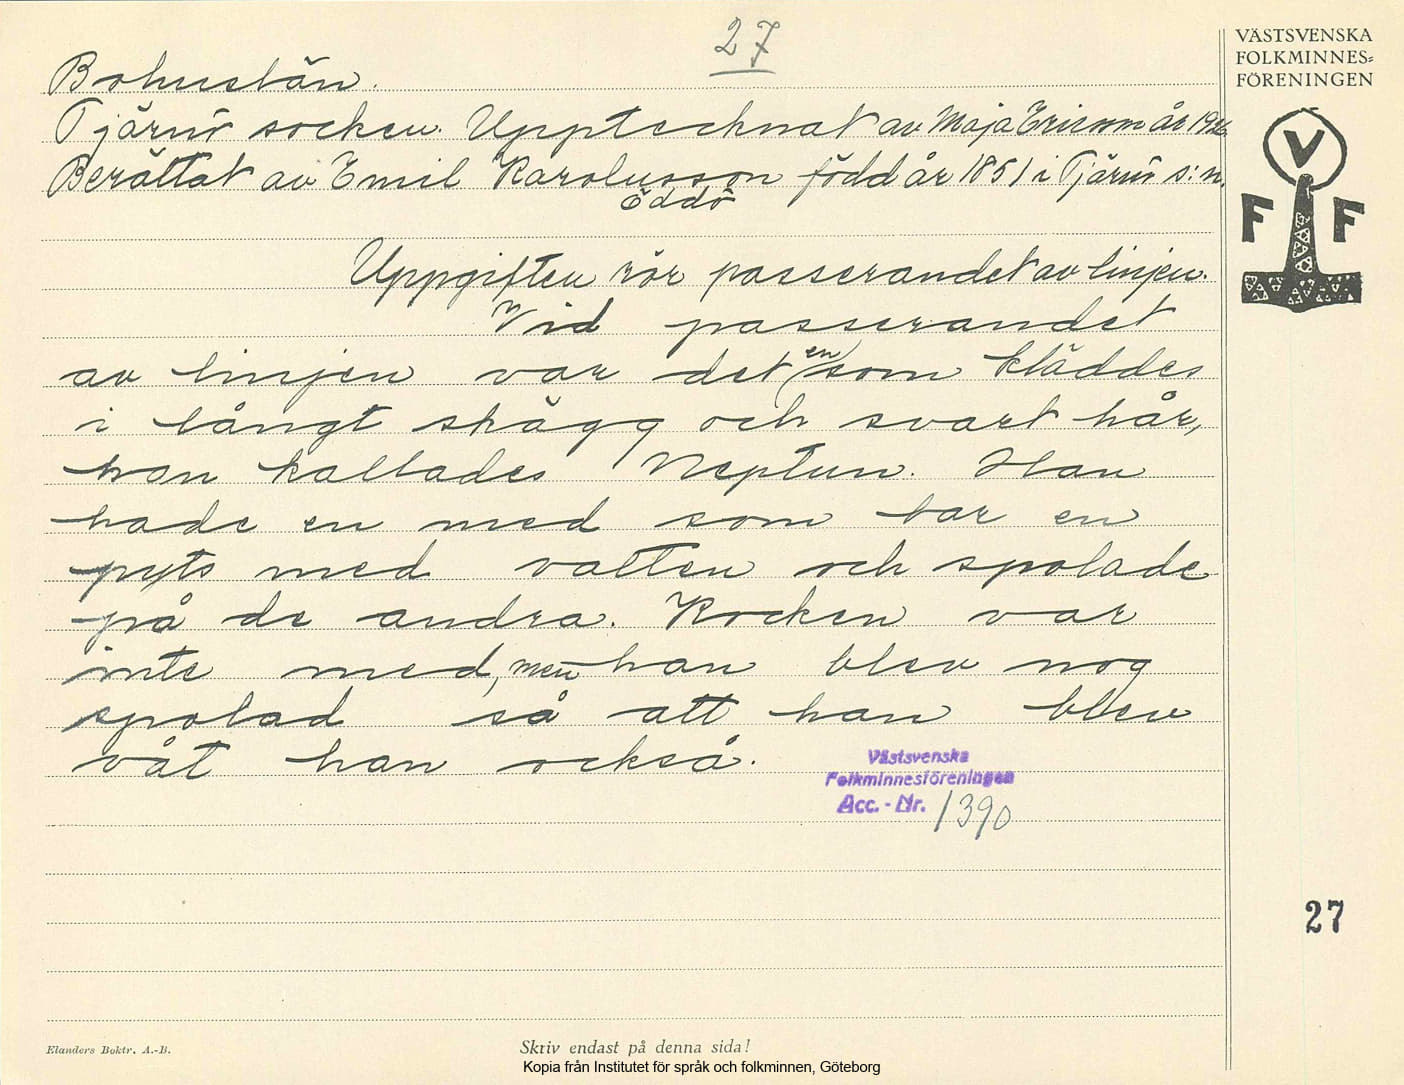 27
VÄSTSVENSKA
FOLKMINNES-
FÖRENINGEN
V
F F
Bohuslän.
Tjärnö socken. Upptecknat av Maja Ericson år 1926
Berättat av Emil Karolusson född år 1851 i Tjärnö s:n.
Öddö
Uppgiften rör passerandet av linjen.
Vid passerandet
av linjen var det en som kläddes
i långt skägg och svart hår,
han kallades Neptun. Han
hade en med som bar en
pyts med vatten och spolade
på de andra. Kocken var
inte med, men han blev nog
spolad så att han blev
våt han också.
Västsvenska
Folkminnesföreningen
Acc. - Nr. 1390
27
Elanders Boktr. A.-B.
Skriv endast på denna sida!
Kopia från Institutet för språk och folkminnen, Göteborg